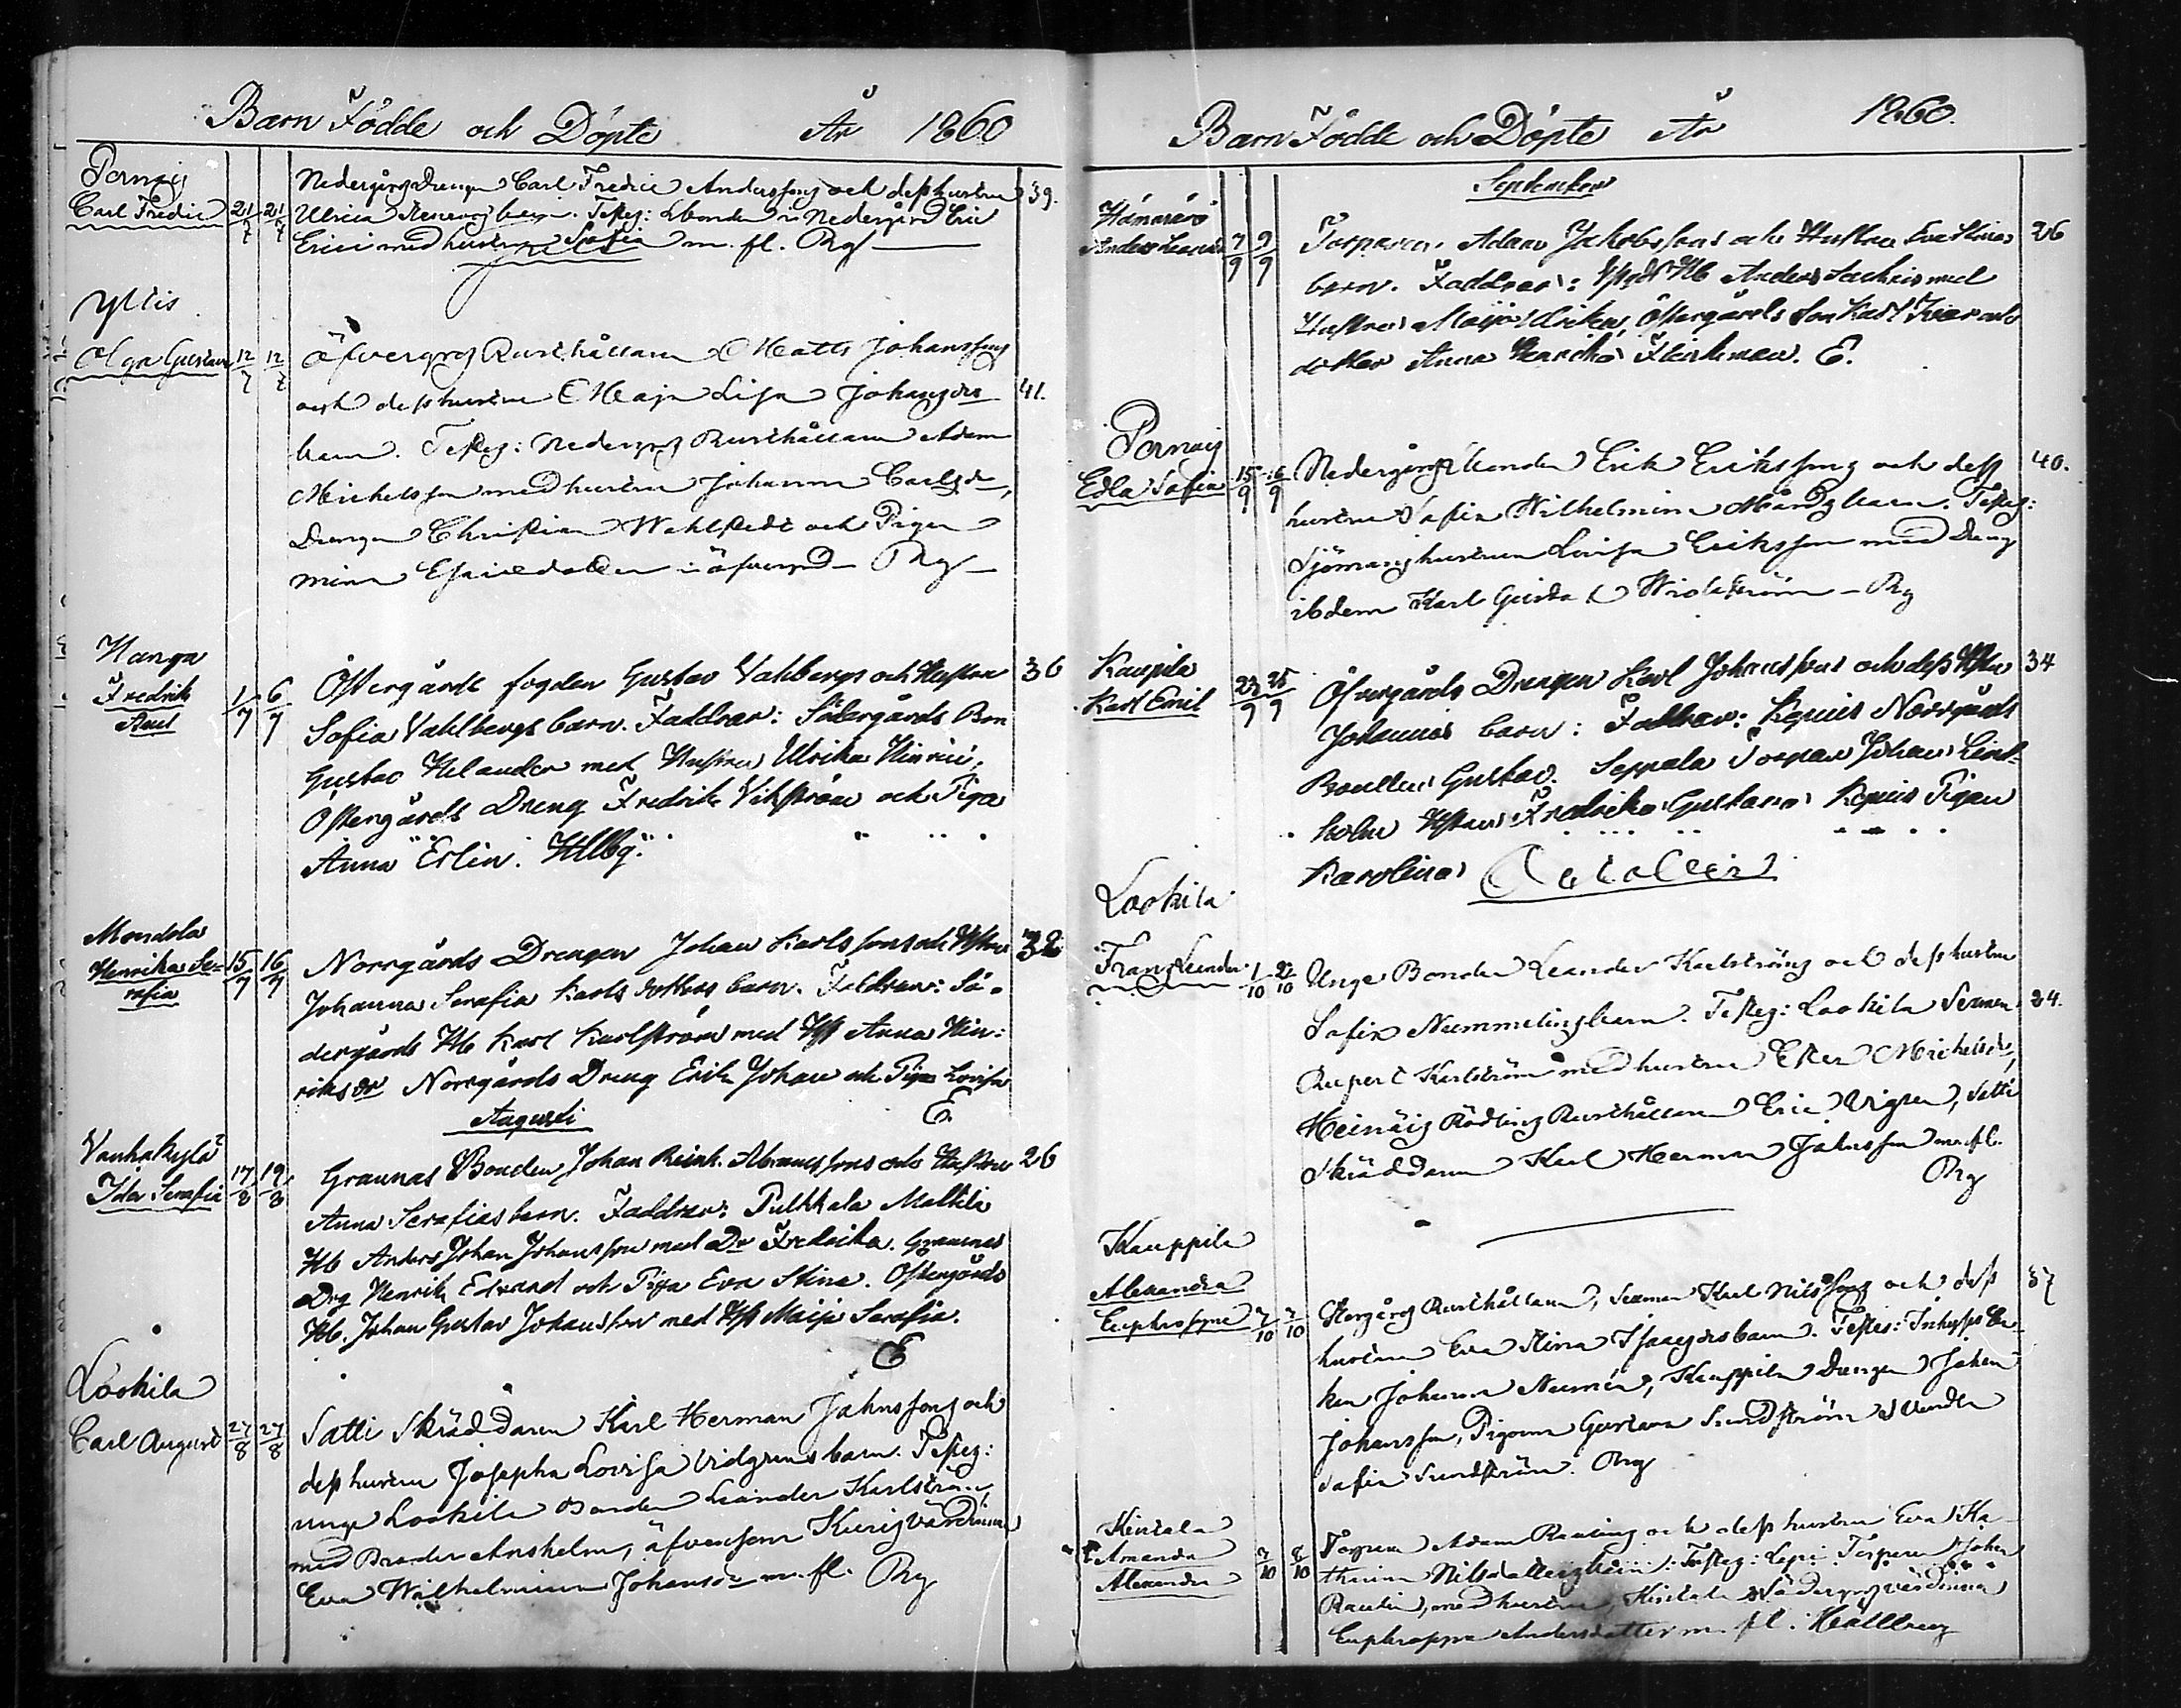 Barn Födde och Döpte År 1860
Pernäis
Carl Fredric 21/7 21/7
Nedergårds Drengen Carl Fredric Anderssons och dess hustru 39.
Ulrica barn. Testes: Bonden i Nedergård Eric
Erici med hustru Sofia m. fl. Rg
Yltis
Olga Gustava 12/7 12/7
Öfvergårds Rusthållaren Matts Johanssons
och dess hustru Maja Lisa Johansdrs 41.
barn. Testes: Nedergrds Rusthållaren Adam
Michelsson med hustru Johanna Carlsdr,
Drengen Christian Wahlstedt och Pigan
Mina Esaiedotter i öfvergrd Rg
Hanga
Fredrik 1/7 6/7
Östergårds fogden Gustav Vahlbergs och Hustru 36
Sofia Vahlbergs barn. Faddrar: Södergårds Bon
Gustav Helander med Hustru Ulrika Hinrici,
Östergårds Dreng Fredrik Vikström och Piga
Anna Erlin. Hllbg.
Mondola
Henrika Se= 15/7 16/7
rafia
Norrgårds Drengen Johan Karlssons och Hstru 32
Johanna Serafia Karls dotters barn. Faddrar: Sö-
dergårds Hb Karl Karlström med Hst Anna Hin:
riks dr Norrgårds Dreng Erik Johan och Piga Lovisa
E
Augusti
Vanhakylä
Ida Serafia 17/8 19/8
Graunas Bonden Johan Reinh. Abramssons och Hustru 26
Anna Serafias barn. Faddrar: Pulkkala Mattila
Hb Anders Johan Johansson med Dr Fredrika. Graunas
Drg Henrik Edvard och Piga Eva Stina. Östergårds
Hb. Johan Gustav Johansson med Hst Maija Serafia.
E
Laokila
Carl August 27/8 27/8
Satti Skräddaren Karl Herman Jahnssons och
dess hustru Josepha Lovisa Vidgrens barn. Testes:
unge Laokila Bonden Leander Karlström
med Broder Anshelm, äfvensom värdinna
Eva Wilhelmina Johansdr m. fl. Rg
Barn Födde och Döpte År 1860.
September
Anders Leander 7/9 9/9
Torparen Adam Jakobssons och Hustru Eva Stinas 26
barn. Faddrar: Hb Anders Sachris med
Hustru Maija Ulrika, Östergårds Son Karl Ivar och
dotter Anna Henrika Flinkman. E.
Pernäis
Edla Sofia 15/9 16/9
Nedergårds bonden Erik Erikssons och dess 40.
hustru Sofia Wilhelmina barn. Testes:
Sjömanshustrun Lovisa Eriksson med Dreng
ibidem Karl Gustaf Widström Rg
Kaupila
Karl Emil 23/9 25/9
Öfvergårds Drengen Karl Johanssons och dess Hstru 34
Johannas barn: Faddrar: Norrgårds
Gustav. Seppala Torpar Johan Lind-
holm Hstru Fredrika Gustava Pigan
Karolina
Laokila
Frans Leander 1/10 2/10
Unge Bonden Leander Karlströms och dess hustru
Sofia Nummelins barn. Testes: Laokila Sexman 24.
Rupert Karlström med hustru Ester Michelsdr,
Heinäis Rusthållaren Eric Vigren, Satti
Skräddaren Karl Herman Jahnsson m. fl.
Rg
Kauppila
Alexandra
Euphrosyne 7/10 7/10
Rusthållaren, Sexman Karl Nilssons och dess 37
hustru Eva Stina Isaacsdrs barn. Testes: En-
kan Johanna Numén, Kauppila Drengen Johan
Johansson, Pigorna Gustava Sundström & Vendla
Sofia Sundström. Rg
Kintala
Amanda 7/10 8/10
Alexandra
Torparen Adam och dess hustru Eva Ka-
tharina Nilsdotters barn. Testes: Torparen Johan
med hustru, Kintala Södergrds värdinna
Euphrosyne Andersdotter m. fl. Hällberg